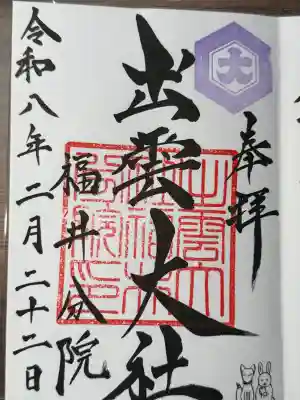 奉拝
大
出雲大社
福井分院
令和八年二月二十二日